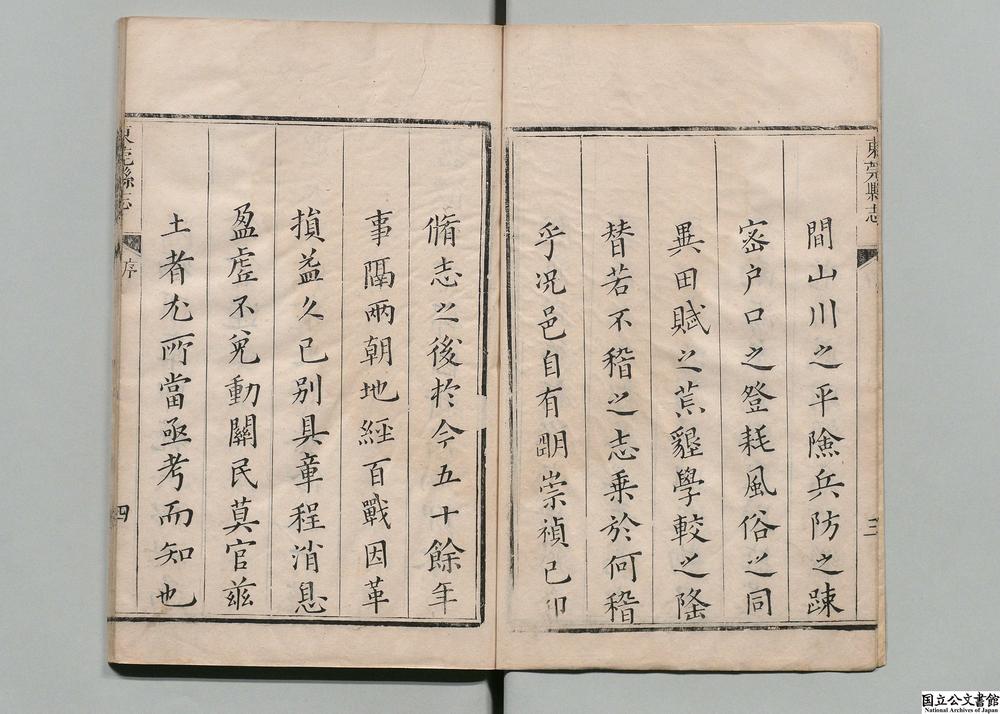 東莞縣志
三
間山川之平險兵防之踈
宻户口之登耗風俗之同
異田賦之荒墾學較之隆
替若不稽之志乗於何稽
乎况邑自有明崇禎己卯
脩志之後於今五十餘年
事隔兩朝地經百戰因革
損益久已别具章程消息
盈虗不免動關民莫官兹
土者尤所當亟考而知也
東莞縣志
序
四
国立公文書館
National Archives of Japan